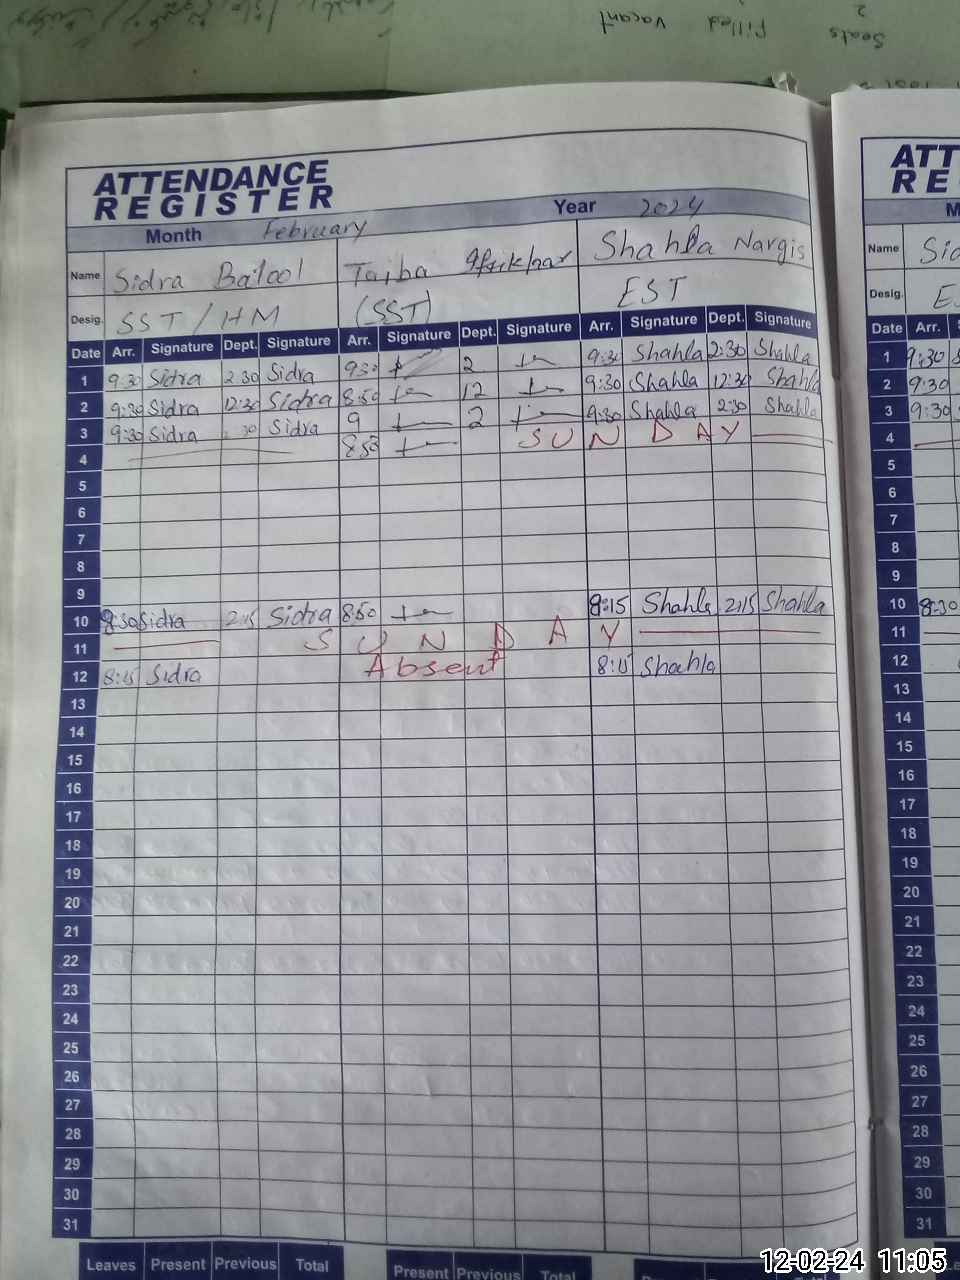 Seats filled vacant
2
ATTENDANCE
REGISTER
Month February Year 2024
Name Sidra Batool Taiba Iftikhar Shahla Nargis
Desig. SST/HM (SST) EST
Date Arr. Signature Dept. Signature Arr. Signature Dept. Signature Arr. Signature Dept. Signature
1 9:30 Sidra 2:30 Sidra 9:30 2 9:30 Shahla 2:30 Shahla
2 9:30 Sidra 12:30 Sidra 8:50 12 9:30 Shahla 12:30 Shahla
3 9:30 Sidra 30 Sidra 9 2 9:30 Shahla 2:30 Shahla
4 8:50 SUNDAY
5
6
7
8
9
10 8:30 Sidra 2:15 Sidra 8:50 8:15 Shahla 2:15 Shahla
11 SUNDAY
12 8:15 Sidra Absent 8:15 Shahla
13
14
15
16
17
18
19
20
21
22
23
24
25
26
27
28
29
30
31
Leaves Present Previous Total Present Previous Total
ATT
RE
M
Name Sid
Desig. E
Date Arr.
1 9:30
2 9:30
3 9:30
4
5
6
7
8
9
10 8:30
11
12
13
14
15
16
17
18
19
20
21
22
23
24
25
26
27
28
29
30
31
12-02-24 11:05